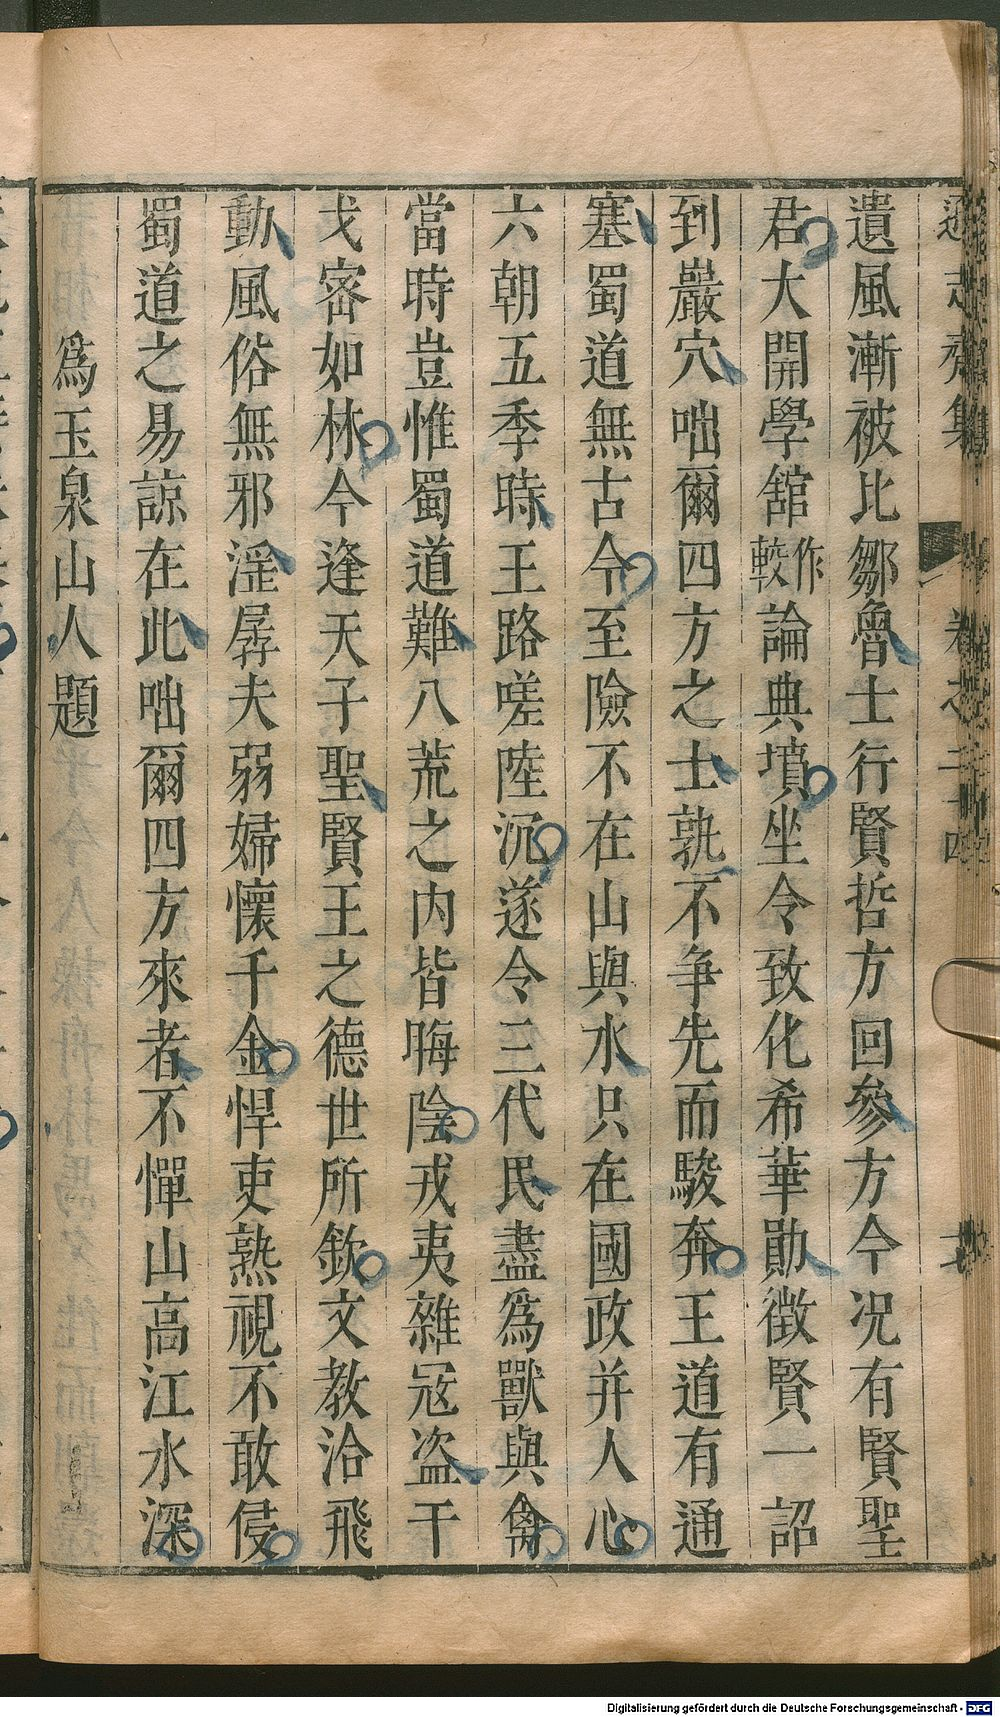 遜志齋集 卷之二十四
遺風漸被比鄒魯士行賢哲方回參方今況有賢聖
君大開學舘作較論典墳坐令致化希華勛徵賢一詔
到巖穴咄爾四方之士孰不争先而駿奔王道有通
塞蜀道無古今至險不在山與水只在國政并人心
六朝五季時王路嗟陸沉遂令三代民盡為獸與禽
當時豈惟蜀道難八荒之内皆晦陰戎夷雜冦盗干
戈宻如林今逢天子聖賢王之德世所欽文教洽飛
動風俗無邪淫孱夫弱婦懷千金悍吏熟視不敢侵
蜀道之易諒在此咄爾四方來者不憚山高江水深
為玉泉山人題
Digitalisierung gefördert durch die Deutsche Forschungsgemeinschaft - DFG